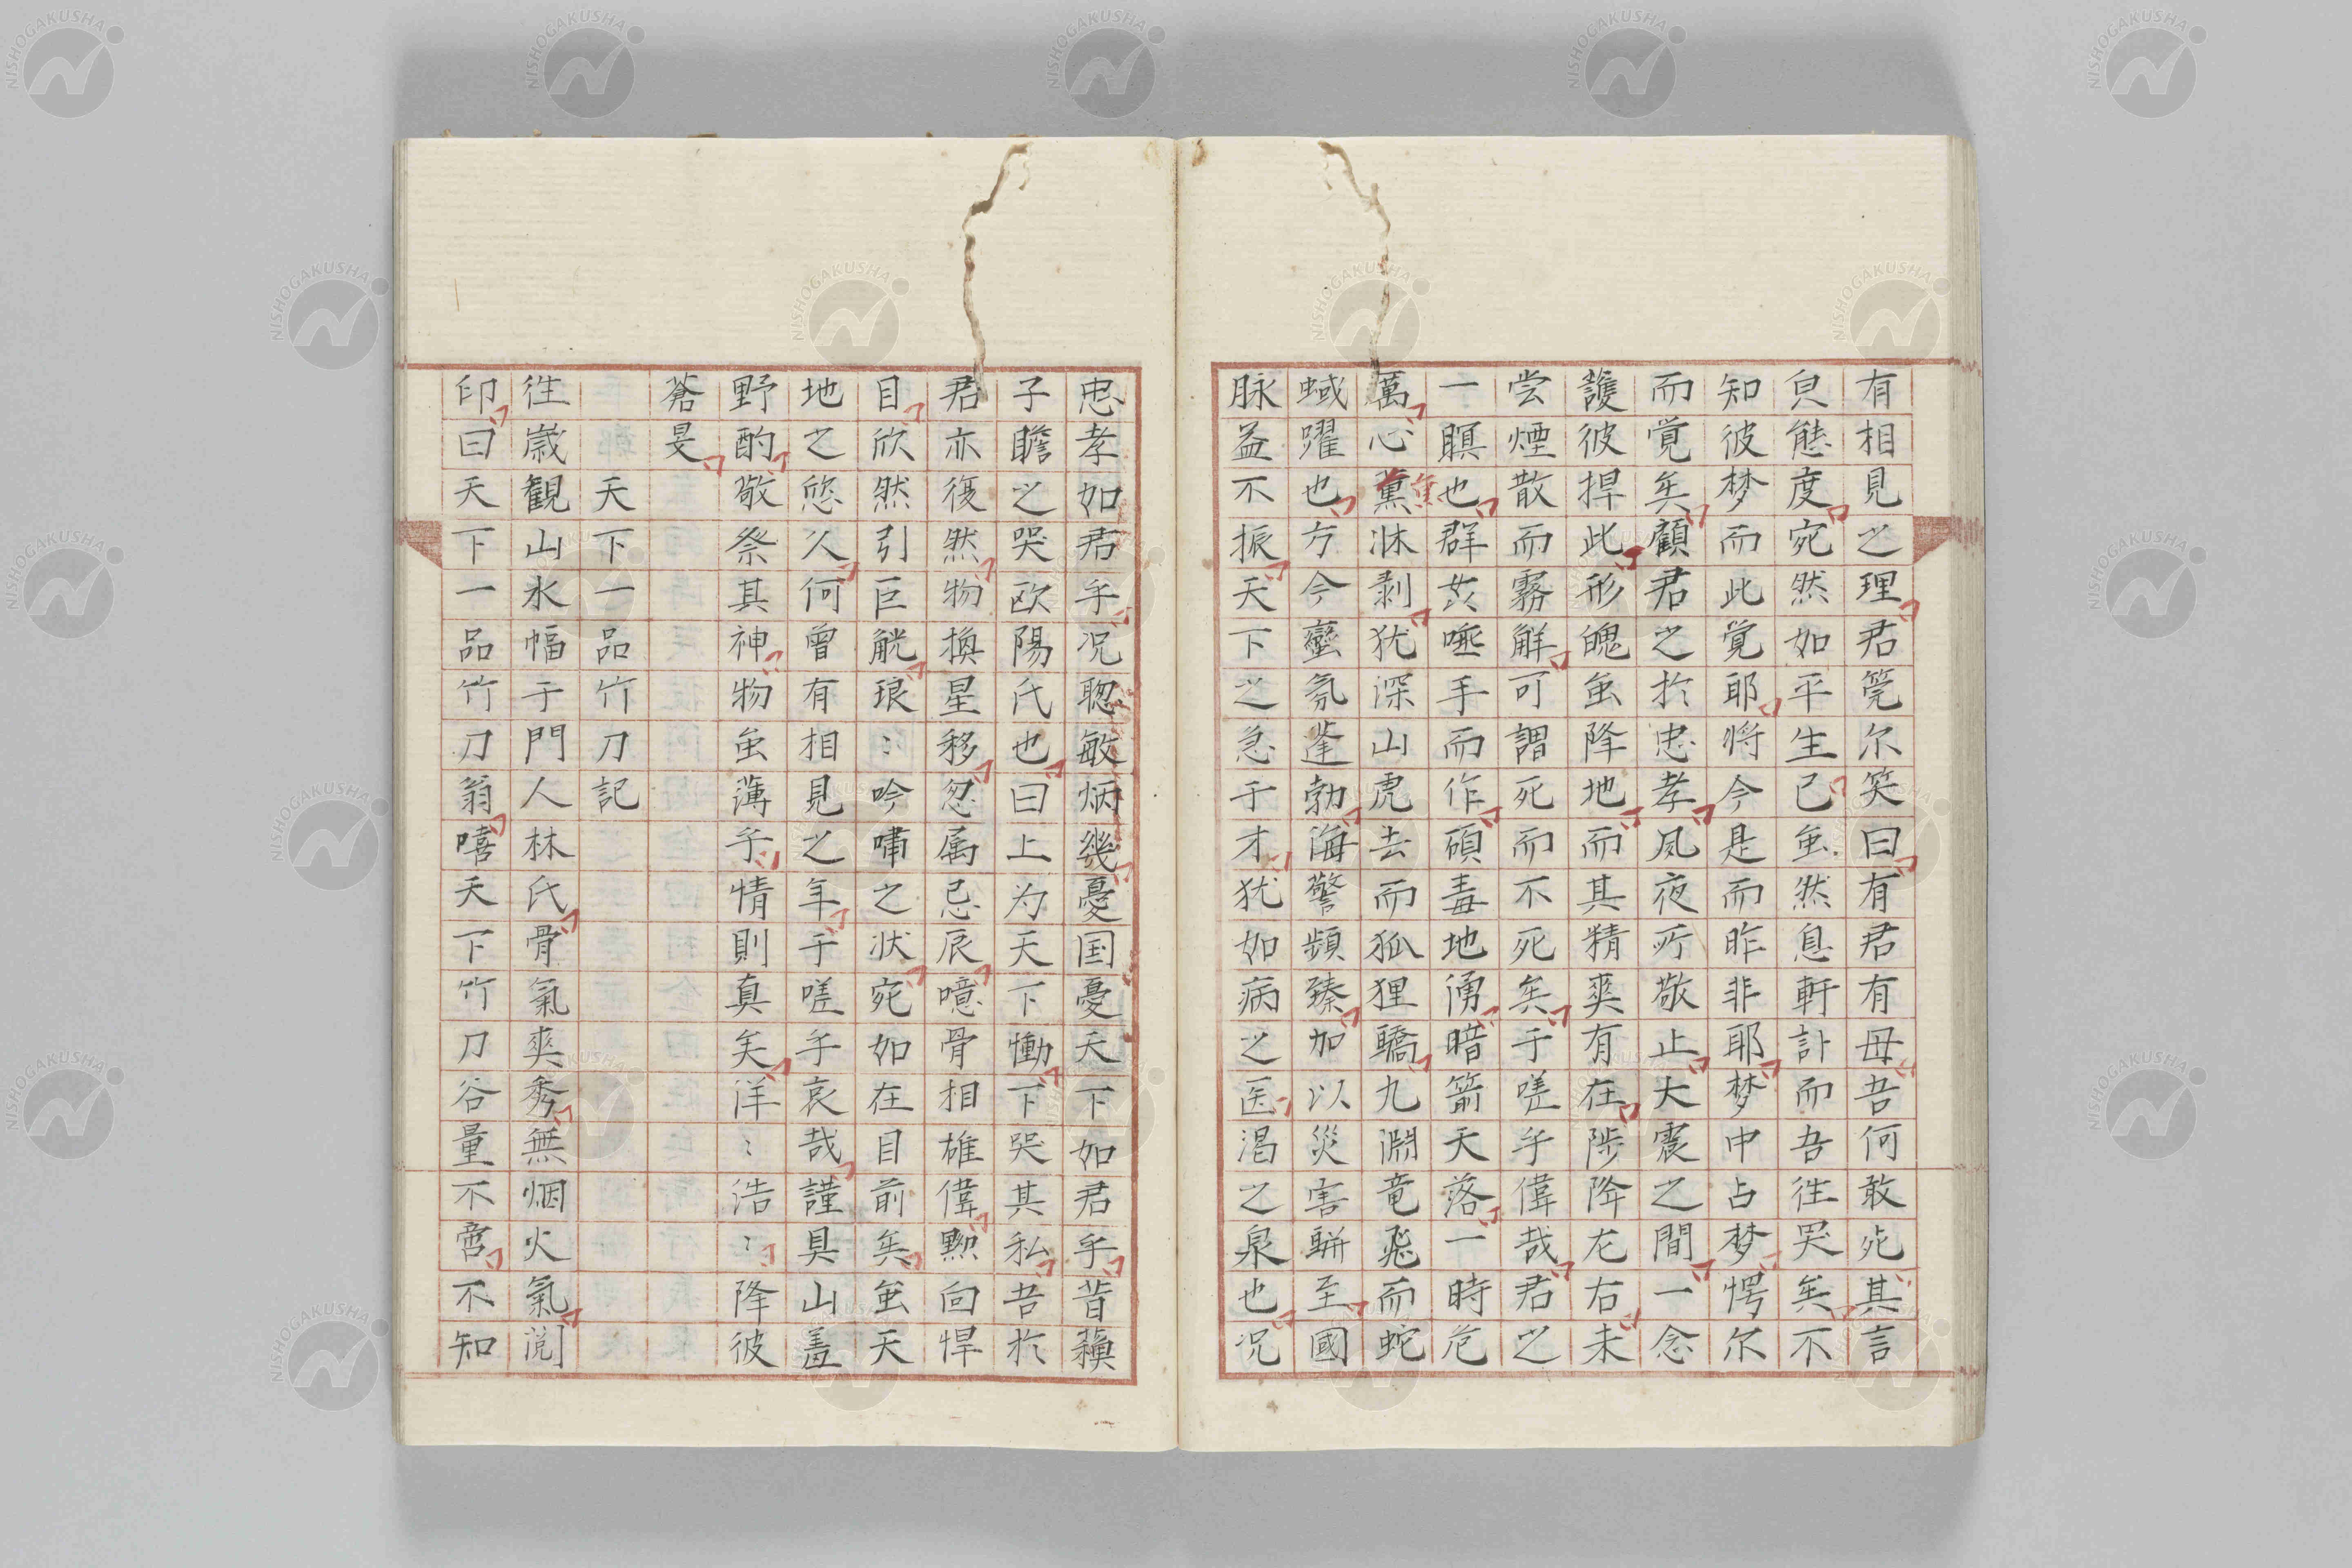 有相見之理君莞尔笑曰有君有母吾何敢死其言
皃態度宛然如平生已虽然息軒訃而吾往哭矣不
知彼梦而此覚耶将今是而昨非耶梦中占梦愕尔
而覚矣顧君之於忠孝夙夜所敬止大震之間一念
護彼捍此形魄虽降地而其精爽有在陟降左右未
尝煙散而霧解可謂死而不死矣于嗟乎偉哉君之
一瞑也群婺唾手而作碩毒地湧暗箭天落一時危
萬心薫焦沐剥犹深山虎去而狐狸驕九淵竜飛而蛇
蜮躍也方今蠻氛蓬勃海警頻臻加以災害駢至國
脉益不振天下之急于才犹如病之医渇之泉也况
忠孝如君乎况聡敏炳幾憂国憂天下如君乎昔蘓
子瞻之哭欧陽氏也曰上为天下慟下哭其私吾於
君亦復然物換星移忽属忌辰噫骨相雄偉黙向悍
目欣然引巨觥琅〻吟嘯之状宛如在目前矣虽天
地之悠久何曾有相見之年于嗟乎哀哉謹具山羞
野酌敬祭其神物虽薄乎情則真矣洋〻浩〻降彼
蒼旻
天下一品竹刀記
往歳観山水幅于門人林氏骨氣爽秀無烟火氣閲
印曰天下一品竹刀翁嘻天下竹刀谷量不啻不知
NISHOGAKUSHA